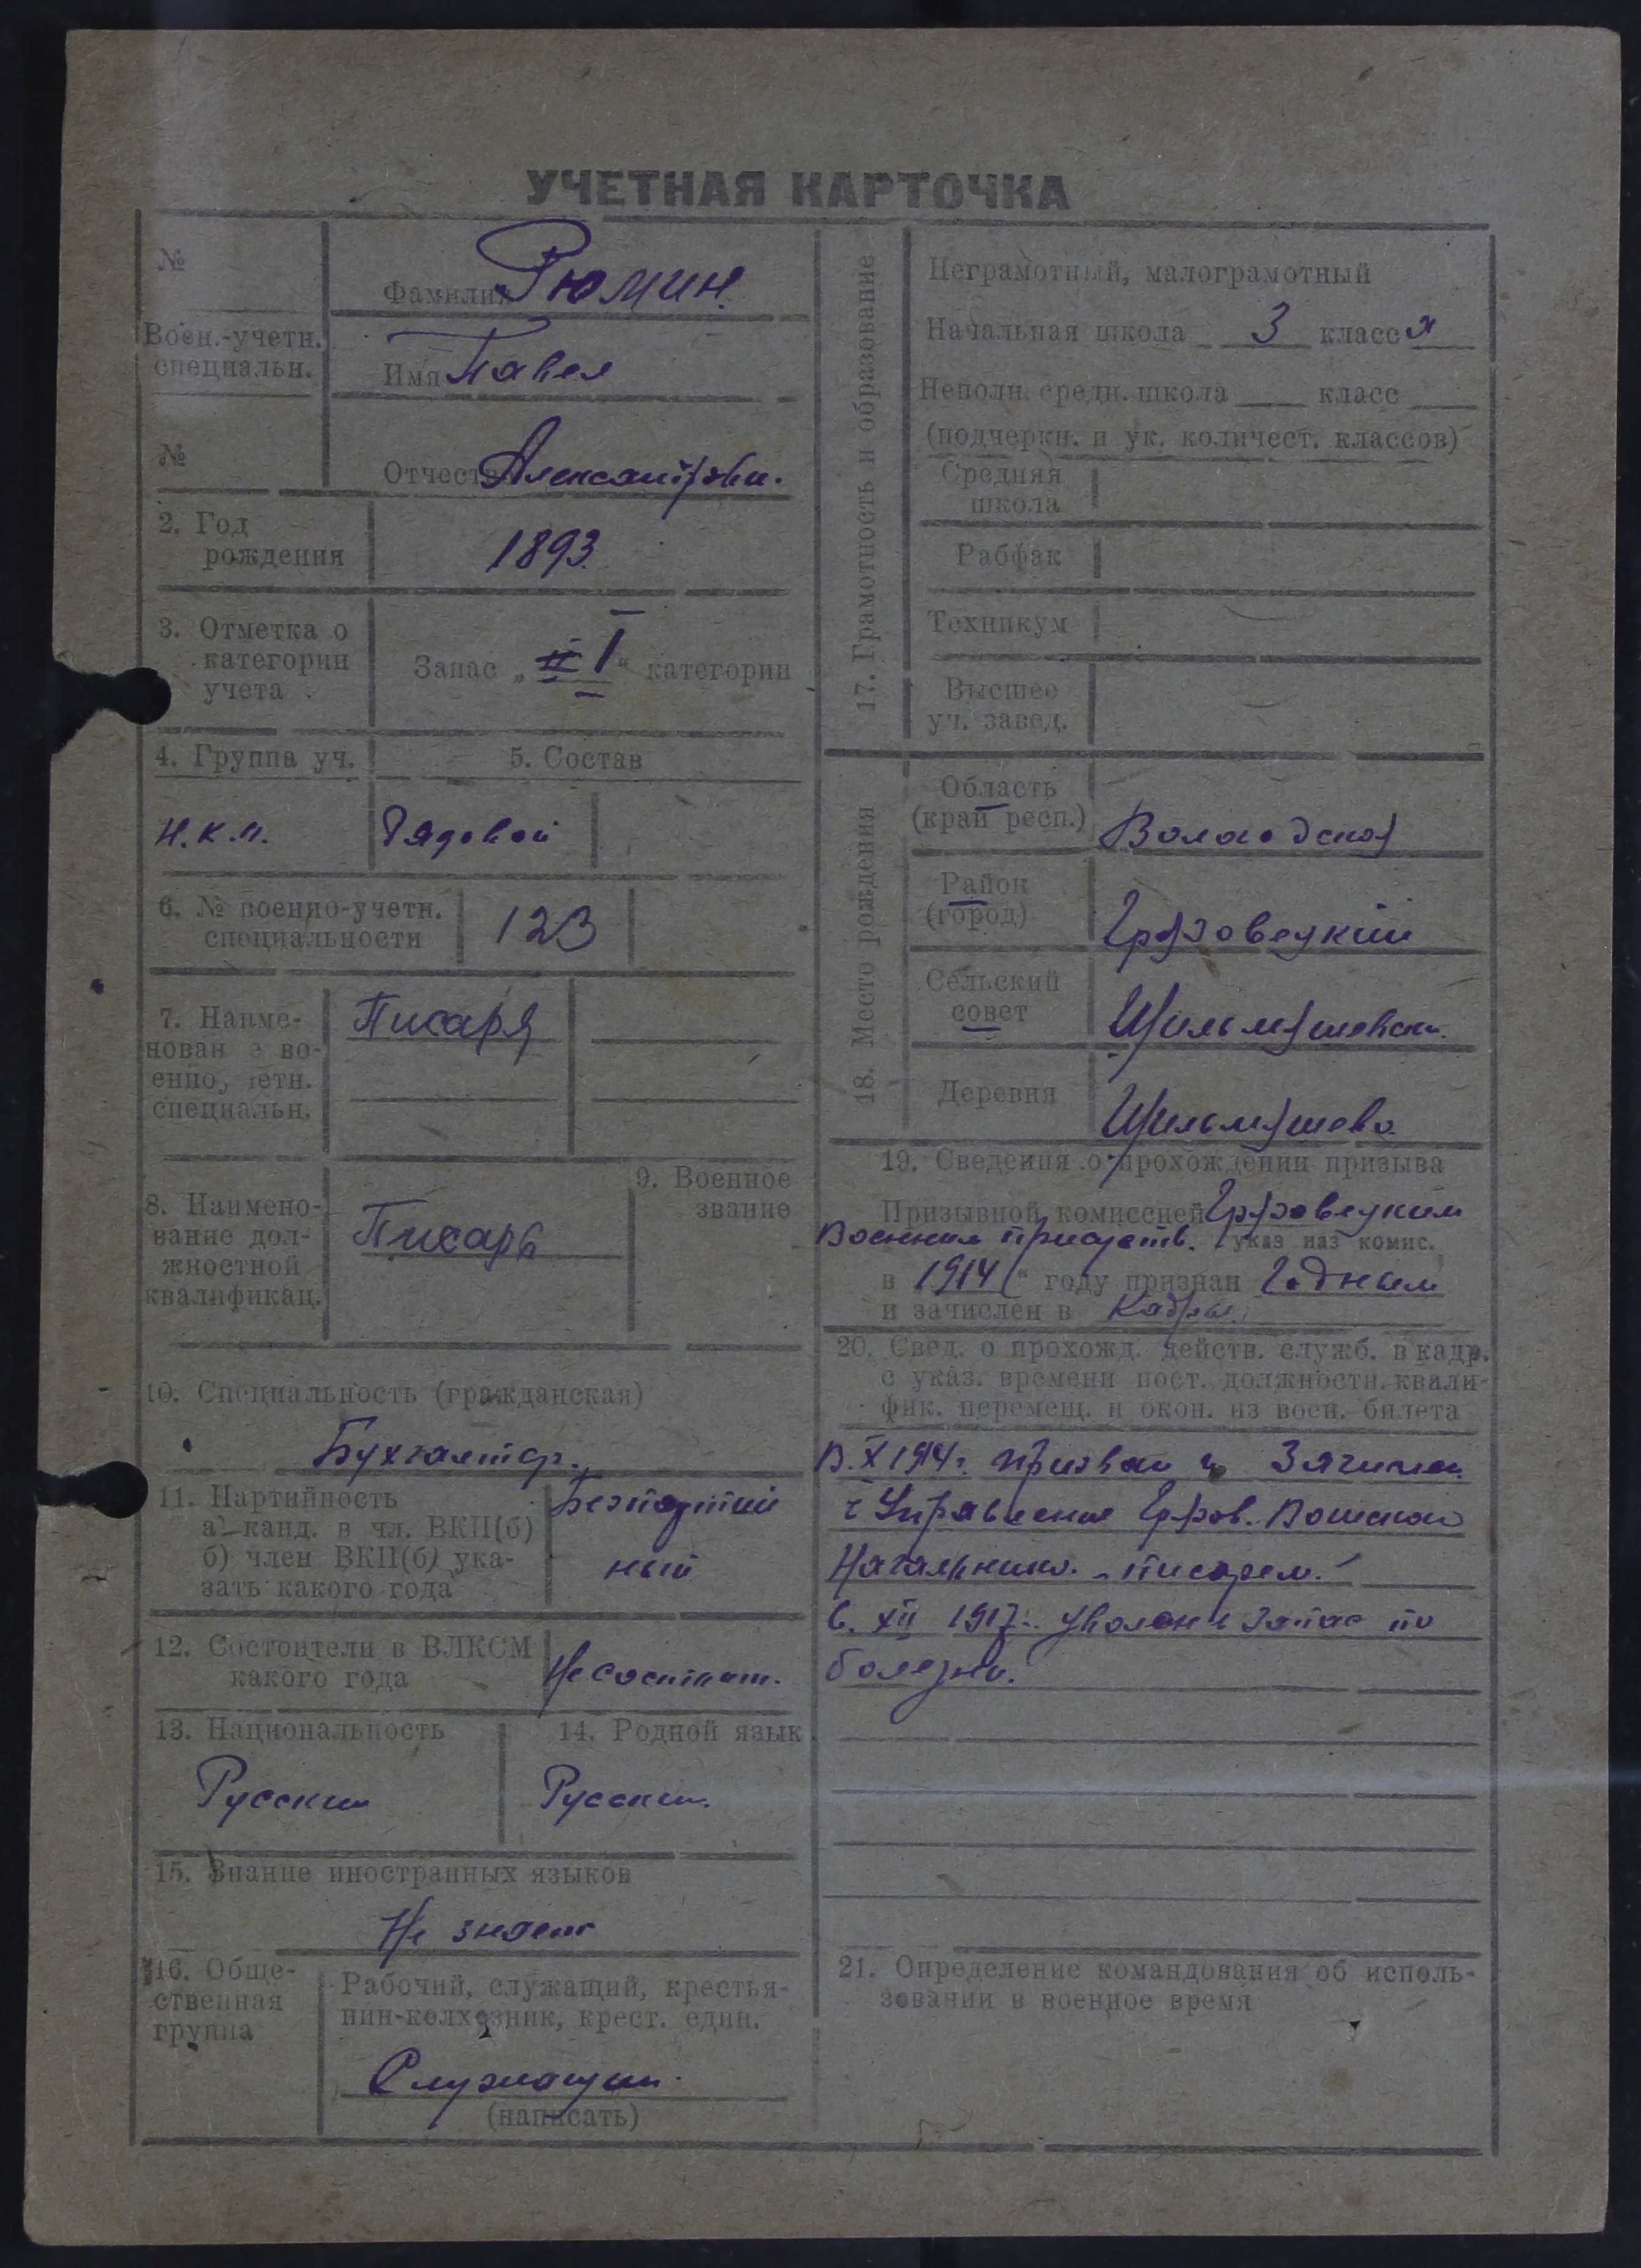 УЧЕТНАЯ КАРТОЧКА
№
Воен.-учетн.
специальн.
№
Фамилия Рюмин
Имя Павел
Отчество Александрови.
2. Год
рождения
1893
3. Отметка о
категории
учета
Запас „ I “ категории
4. Группа уч.
5. Состав
Н.К.П.
Рядовой
6. № военно-учетн.
специальности
123
7. Наиме-
нован е во-
енно, четн.
специальн.
Писаря
8. Наимено-
вание дол-
жностной
квалификац.
Писарь
9. Военное
звание
10. Специальность (гражданская)
Бухгалтер.
11. Партийность
а) канд. в чл. ВКП(б)
б) член ВКП(б) ука-
зать какого года
Безпартий
ный
12. Состоите ли в ВЛКСМ
какого года
Не состоит.
13. Национальность
Русский
14. Родной язык
Русский.
15. Знание иностранных языков
Не знает
16. Обще-
ственная
группа
Рабочий, служащий, крестья-
нин-колхозник, крест. един.
Служащий.
(написать)
17. Грамотность и образование
Неграмотный, малограмотный
Начальная школа 3 класса
Неполн. средн. школа класс
(подчеркн. и ук. количест. классов)
Средняя
школа
Рабфак
Техникум
Высшее
уч. завед.
18. Место рождения
Область
(край респ.)
Вологодская
Район
(город)
Грязовецкий
Сельский
совет
Деревня
19. Сведения о прохождении призыва
Призывной комиссией Грязовецким
Военным присутств. указ наз комис.
в 1914 " году признан Годным
и зачислен в Кадры.
20. Свед. о прохожд. действ. служб. в кадр.
с указ. времени пост. должностн. квали-
фик. перемещ. и окон. из воен. билета
В. X 1914 г. призван и Зачислен.
в Управление Гряз. Воинско
Начальника. - писарем.
в. XII 1917 г. уволен в запас по
болезни.
21. Определение командования об исполь-
зовании в военное время